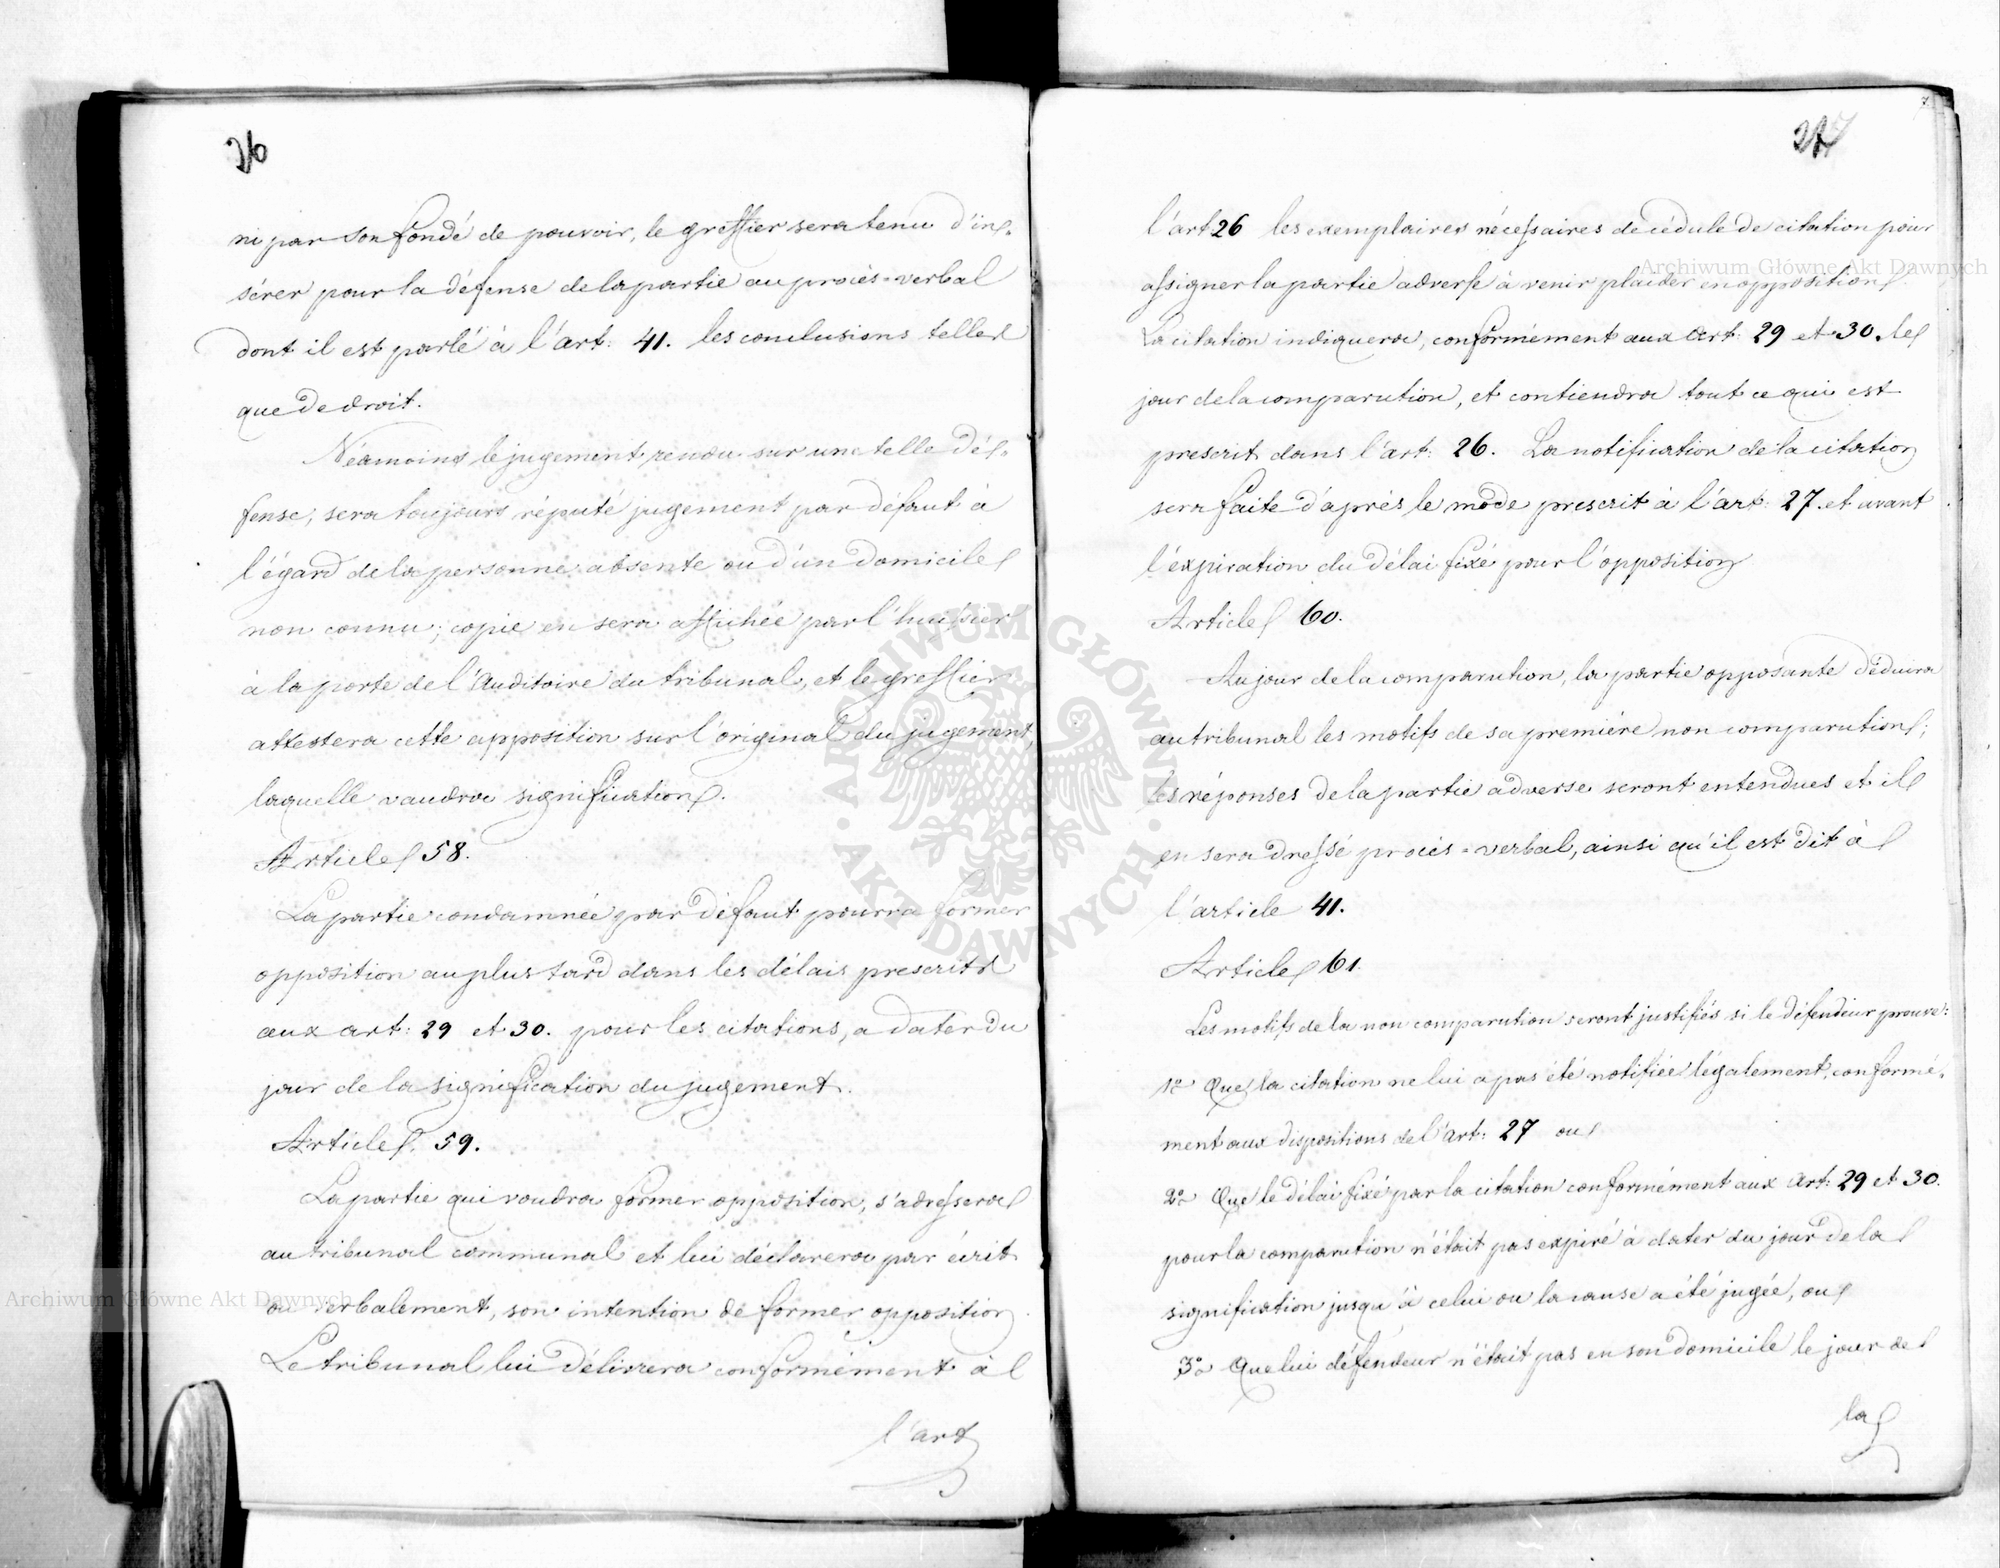 26
ni par son fondé de pouvoir, le greffier sera tenu d'in-
sérer pour la défense de la partie au procès-verbal
dont il est parlé à l'art: 41. les conclusions telles
que de droit.
Néamoins le jugement rendu sur une telle dé-
fense, sera toujours réputé jugement par défaut à
l'égard de la personne absente ou d'un domicile
non connu; copie en sera affichée par l'huissier
à la porte de l'Auditoire du tribunal, et le greffier
attestera cette apposition sur l'original du jugement,
laquelle vaudra signification.
Article 58.
La partie condamnée par défaut pourra former
opposition au plus tard dans les délais prescrits
aux art: 29 et 30. pour les citations, a dater du
jour de la signification du jugement.
Article 59.
La partie qui voudra former opposition, s'adressera
au tribunal communal et lui déclarera par écrit
ou verbalement, son intention de former opposition.
Le tribunal lui délivrera conformément à
l'art
27
l'art 26 les exemplaires nécessaires de cédule de citation pour
assigner la partie adverse à venir plaider en opposition.
La citation indiquera, conformément aux Art: 29 et 30. le
jour de la comparution, et contiendra tout ce qui est
prescrit dans l'art: 26. La notification de la citation
sera faite d'après le mode prescrit à l'art: 27. et avant
l'éxpiration du délai fixé pour l'opposition
Article 60.
Au jour de la comparution, la partie opposante déduira
au tribunal les motifs de sa première non comparution;
les réponses de la partie adverse seront entendues et il
en sera dressé procès-verbal, ainsi qu'il est dit à
l'article 41.
Article 61.
Les motifs de la non comparution seront justifiés si le défendeur prouve:
1º Que la citation ne lui a pas été notifiée légalement, conformé-
ment aux dispositions de l'art: 27 ou
2º Que le délai fixé par la citation conformément aux Art: 29 et 30.
pour la comparution n'était pas expiré à dater du jour de la
signification jusqu'à celui ou la cause a été jugée, ou
3º Que lui défendeur n'était pas en son domicile le jour de
la
Archiwum Główne Akt Dawnych
Archiwum Główne Akt Dawnych
ARCHIWUM GŁÓWNE · AKT DAWNYCH ·